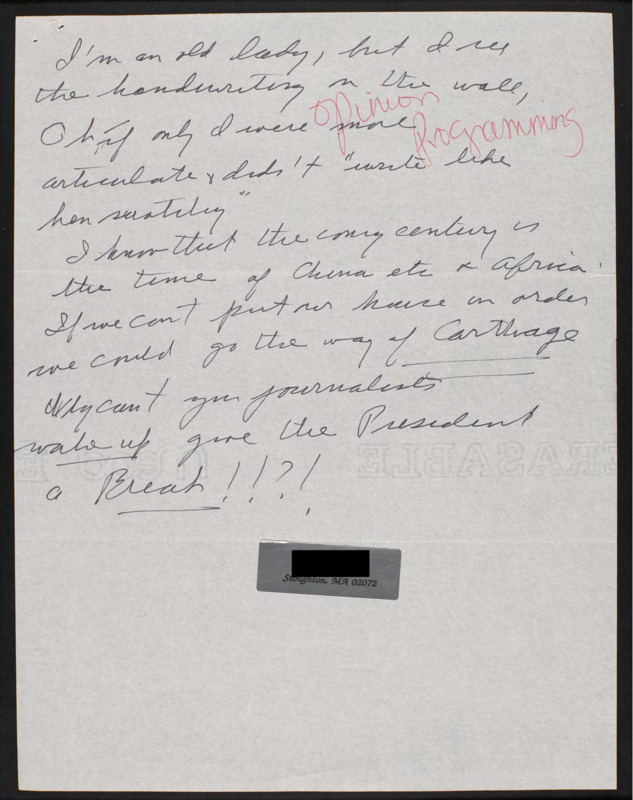 I'm an old lady, but I see
the handwriting on the wall,
Oh, if only I were more
opinion
programming
articulate & didn't "write like
hen scratching"
I know that the coming century is
the time of China etc & Africa.
If we can't put our house in order
we could go the way of Carthage
Why can't you journalists
wake up give the President
a Break!!?!
ERASABLE
Stoughton, MA 02072